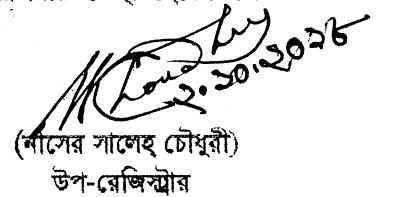 ২.১০.২০১৮
(নাসের সালেহ্ চৌধুরী)
উপ-রেজিস্ট্রার